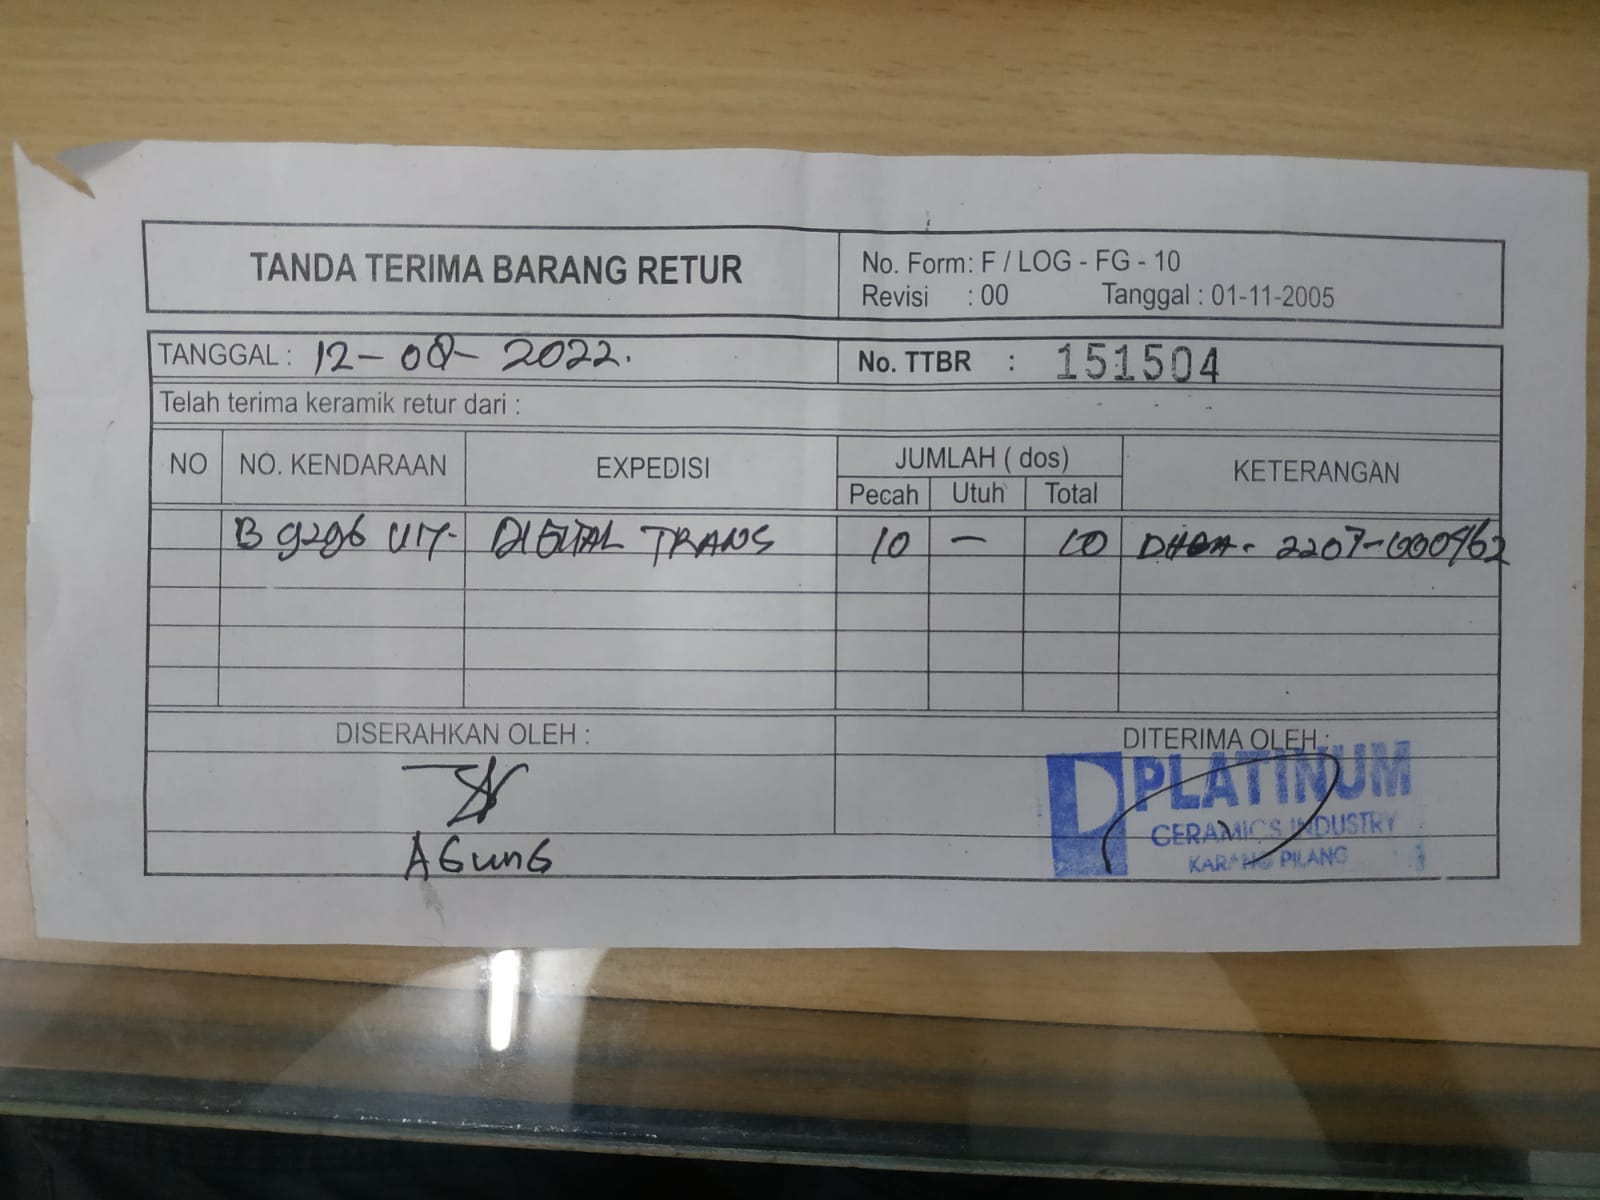 TANDA TERIMA BARANG RETUR
No. Form: F / LOG - FG - 10
Revisi : 00 Tanggal : 01-11-2005
TANGGAL : 12-08-2022.
No. TTBR : 151504
Telah terima keramik retur dari :
NO NO. KENDARAAN EXPEDISI JUMLAH ( dos) KETERANGAN
Pecah Utuh Total
B 9296 DIGITAL TRANS 10 - 10
DISERAHKAN OLEH :
DITERIMA OLEH :
AGUNG
PLATINUM
CERAMICS INDUSTRY
KARANG PILANG